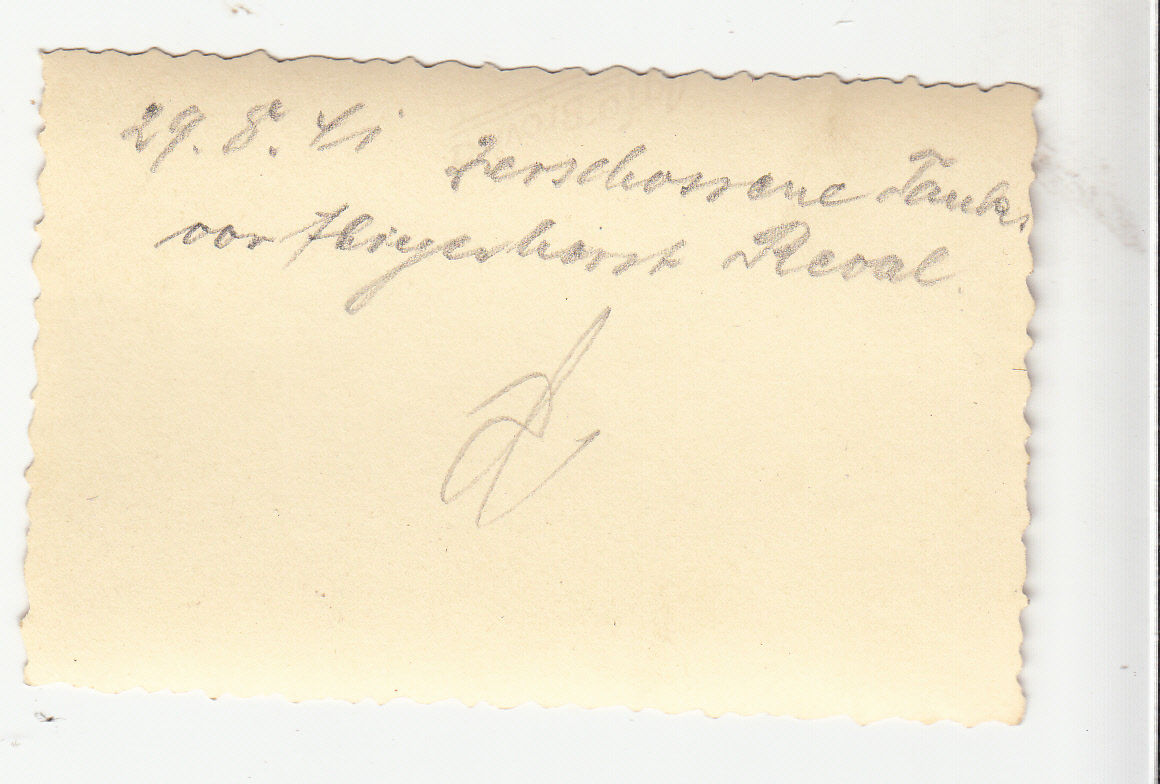 29. 8. 41 zerschossene Tanks
vor Fliegerhorst Reval.